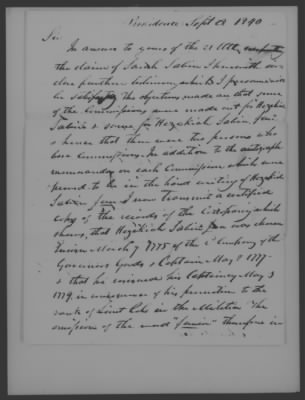 Providence Sept 8 1840
Sir
In answer to yours of the 21 Ult.
the claim of Sarah Sabin I herewith en-
close further testimony which I presume will
be satisfactory. The objections made are that some
of the Commissions were made out for Hezekiah
Sabin & some for Hezekiah Sabin Jun.
& hence that there were two persons who
bore Commissions. In addition to the autograph
memorandum on each Commission which were
proved to be in the hand writing of Hezekiah
Sabin Jun I now transmit a certified
copy of the records of the Company which
shows, that Hezekiah Sabin Jun was chosen
Ensign March 7 1775 of the 2d Company of the
Governors Guards & Captain May 8 1777
& that he resigned his Captaincy May 3
1779, in consequence of his promotion to the
rank of Lieut Col. in the Militia. The
omission of the word "Junior" therefore in